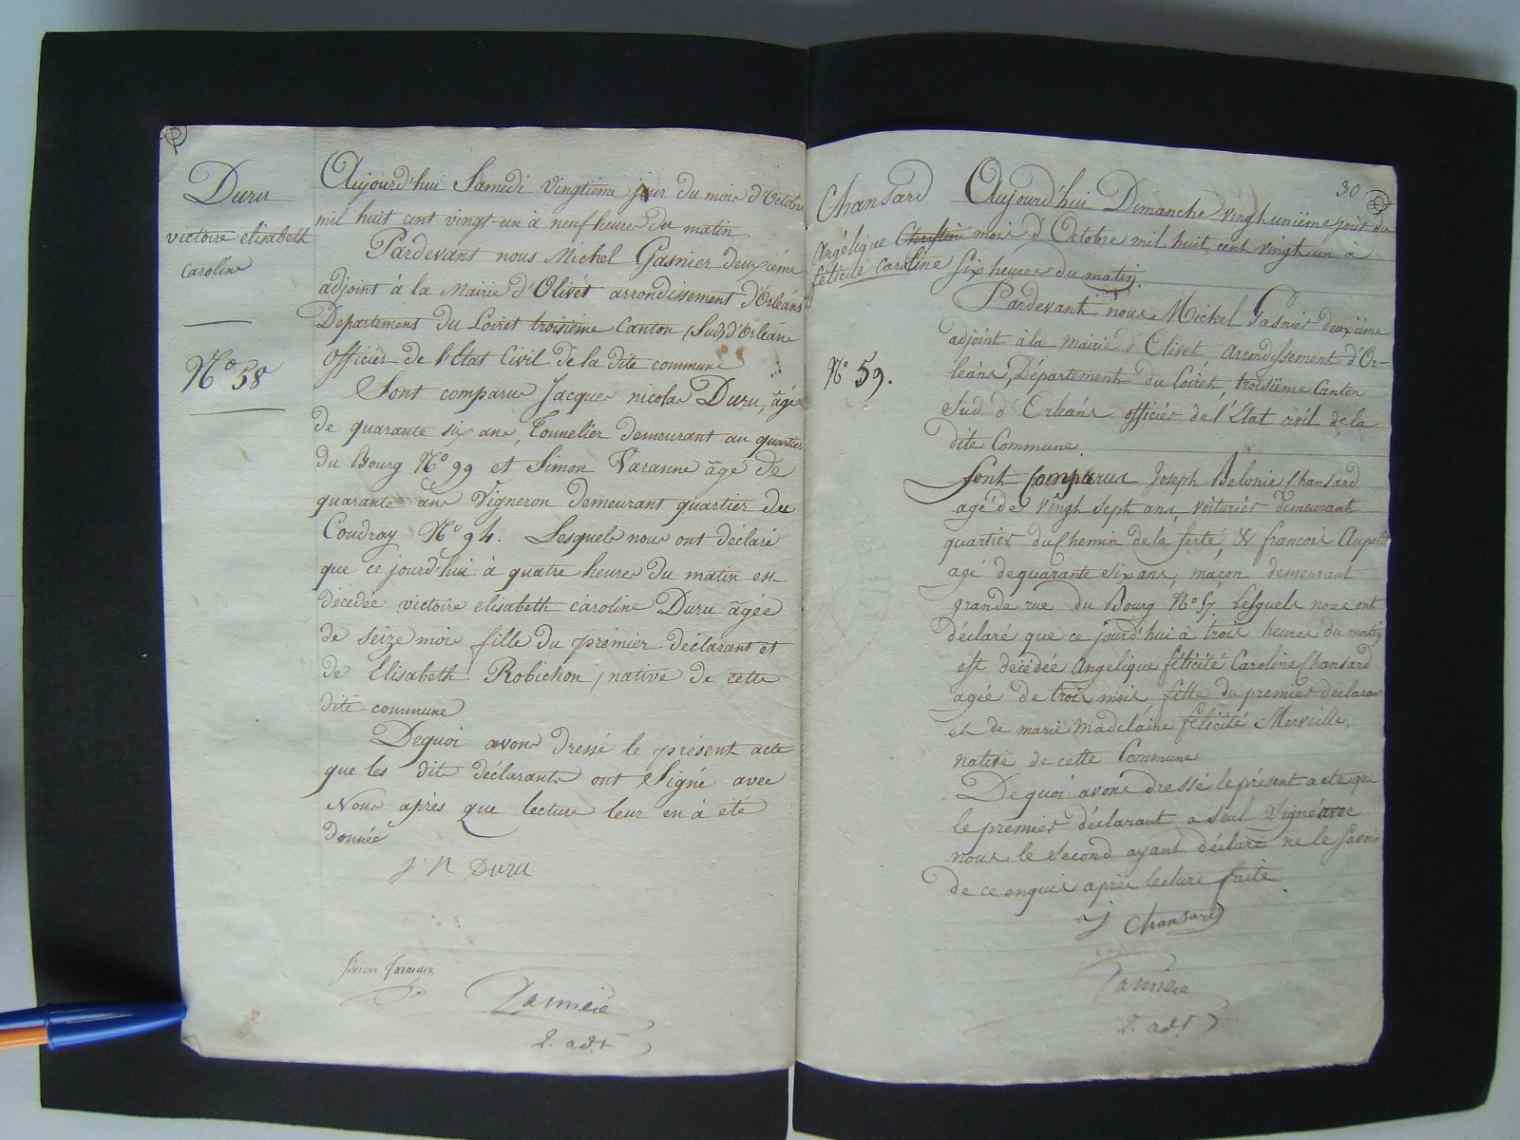 Duru
victoire elisabeth
caroline
N° 58
Aujourd'hui Samedi vingtième jour du mois d'Octobre
mil huit cent vingt-un à neuf heures du matin
Pardevant nous Michel Gasnier deuxième
adjoint à la Mairie d'Olivet arrondissement d'Orléans
Département du Loiret troisième Canton (Sud) d'Orléans
officier de l'Etat Civil de la dite commune
Sont comparus Jacques nicolas Duru, âgé
de quarante six ans, Tonnelier demeurant au quartier
du Bourg N° 99 et Simon Varanne âgé de
quarante ans Vigneron demeurant quartier du
Coudray N° 94. Lesquels nous ont déclaré
que ce jourd'hui à quatre heures du matin est
décédée victoire elisabeth caroline Duru âgée
de seize mois fille du premier déclarant et
de Elisabeth Robichon, native de cette
dite commune
Dequoi avons dressé le présent acte
que les dit déclarants ont Signé avec
Nous après que lecture leur en à été
donnée
J N Duru
2. adjt
30
Chansard
Angélique Christine
félicité Caroline
N° 59.
Aujourd'hui Dimanche vingt unième jour du
mois d'Octobre mil huit cent vingt un à
Six heures du matin.
Pardevant nous Michel Gasnier deuxième
adjoint à la mairie d'Olivet arrondissement d'Or-
léans, Département du Loiret troisième Canton
Sud d'Orléans officier de l'Etat civil de la
dite Commune.
Sont Comparus Joseph Belonie Chansard
agé de Vingt sept ans voiturier demeurant
quartier du Chemin de la ferté, & francois
agé de quarante six ans, maçon, demeurant
grande rue du Bourg N° 57. Lesquels nous ont
déclaré que ce jourd'hui à trois heures du matin
est décédée Angelique félicité Caroline Chansard
agée de trois mois fille du premier déclarant
et de marie Madelaine félicité Merveille,
native de cette Commune
De quoi avons dressé le présent acte que
le premier déclarant a seul Signé avec
nous le second ayant déclaré ne le savoir
de ce enquis après lecture faite.
J Chansard
2. adjt